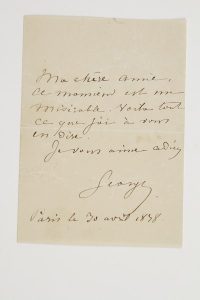 Ma chère Annie,
ce monsieur est un
misérable. Voila tout
ce que j'ai à vous
en dire.
Je vous aime adieu
George
Paris le 30 1838